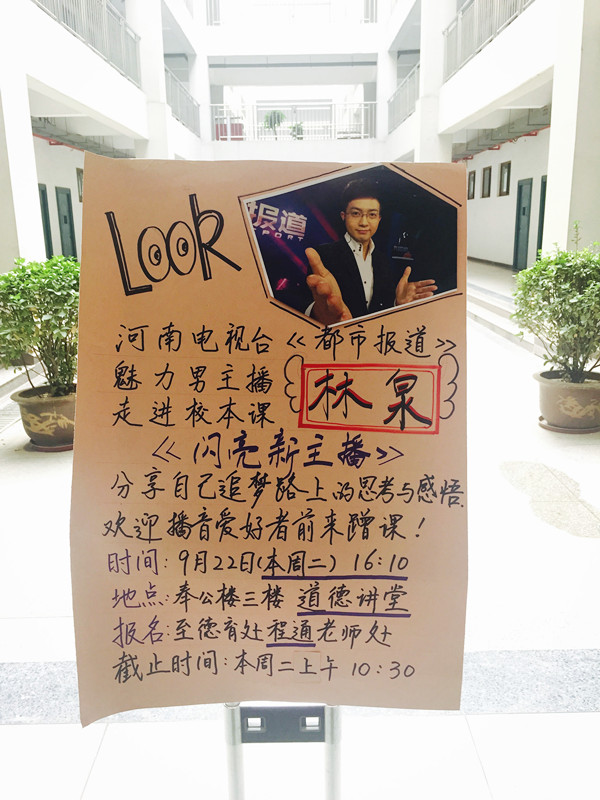 Look
报道
PORT
河南电视台《都市报道》
魅力男主播
林泉
走进校本课
《闪亮新主播》
分享自己追梦路上的思考与感悟.
欢迎播音爱好者前来蹭课！
时间：9月22日(本周二) 16:10
地点：奉公楼三楼 道德讲堂
报名：至德育处程通老师处
截止时间：本周二上午 10:30